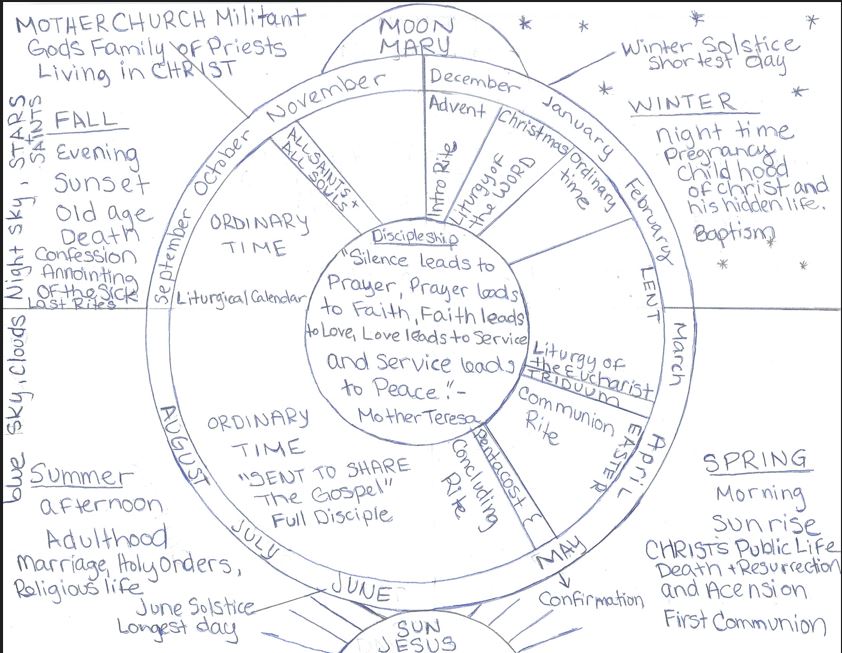 MOTHER CHURCH Militant
Gods Family of Priests
Living in CHRIST
MOON
MARY
Winter Solstice
Shortest day
Night sky, STARS
SAINTS
FALL
Evening
Sunset
Old age
Death
Confession
Annointing
Of the Sick
Last Rites
WINTER
night time
Pregnancy
Child hood
of christ and
his hidden life.
Baptism
December
January
February
March
April
MAY
JUNE
JULY
AUGUST
September
October
November
Advent
Intro Rite
Christmas
Liturgy of
the WORD
Ordinary
time
LENT
Liturgy of
the Eucharist
TRIDUUM
Communion
Rite
EASTER
Pentacost &
Concluding
Rite
ALL SAINTS +
ALL SOULS
ORDINARY
TIME
Liturgical Calendar
Discipleship
"Silence leads to
Prayer, Prayer leads
to Faith, Faith leads
to Love, Love leads to Service
and Service leads
to Peace." -
Mother Teresa
ORDINARY
TIME
"SENT TO SHARE
The Gospel"
Full Disciple
blue sky, Clouds
Summer
afternoon
Adulthood
Marriage, Holy Orders,
Religious life
June Solstice
Longest day
SPRING
Morning
Sunrise
CHRIST'S Public Life
Death + Resurrection
and Acension
First Communion
Confirmation
SUN
JESUS